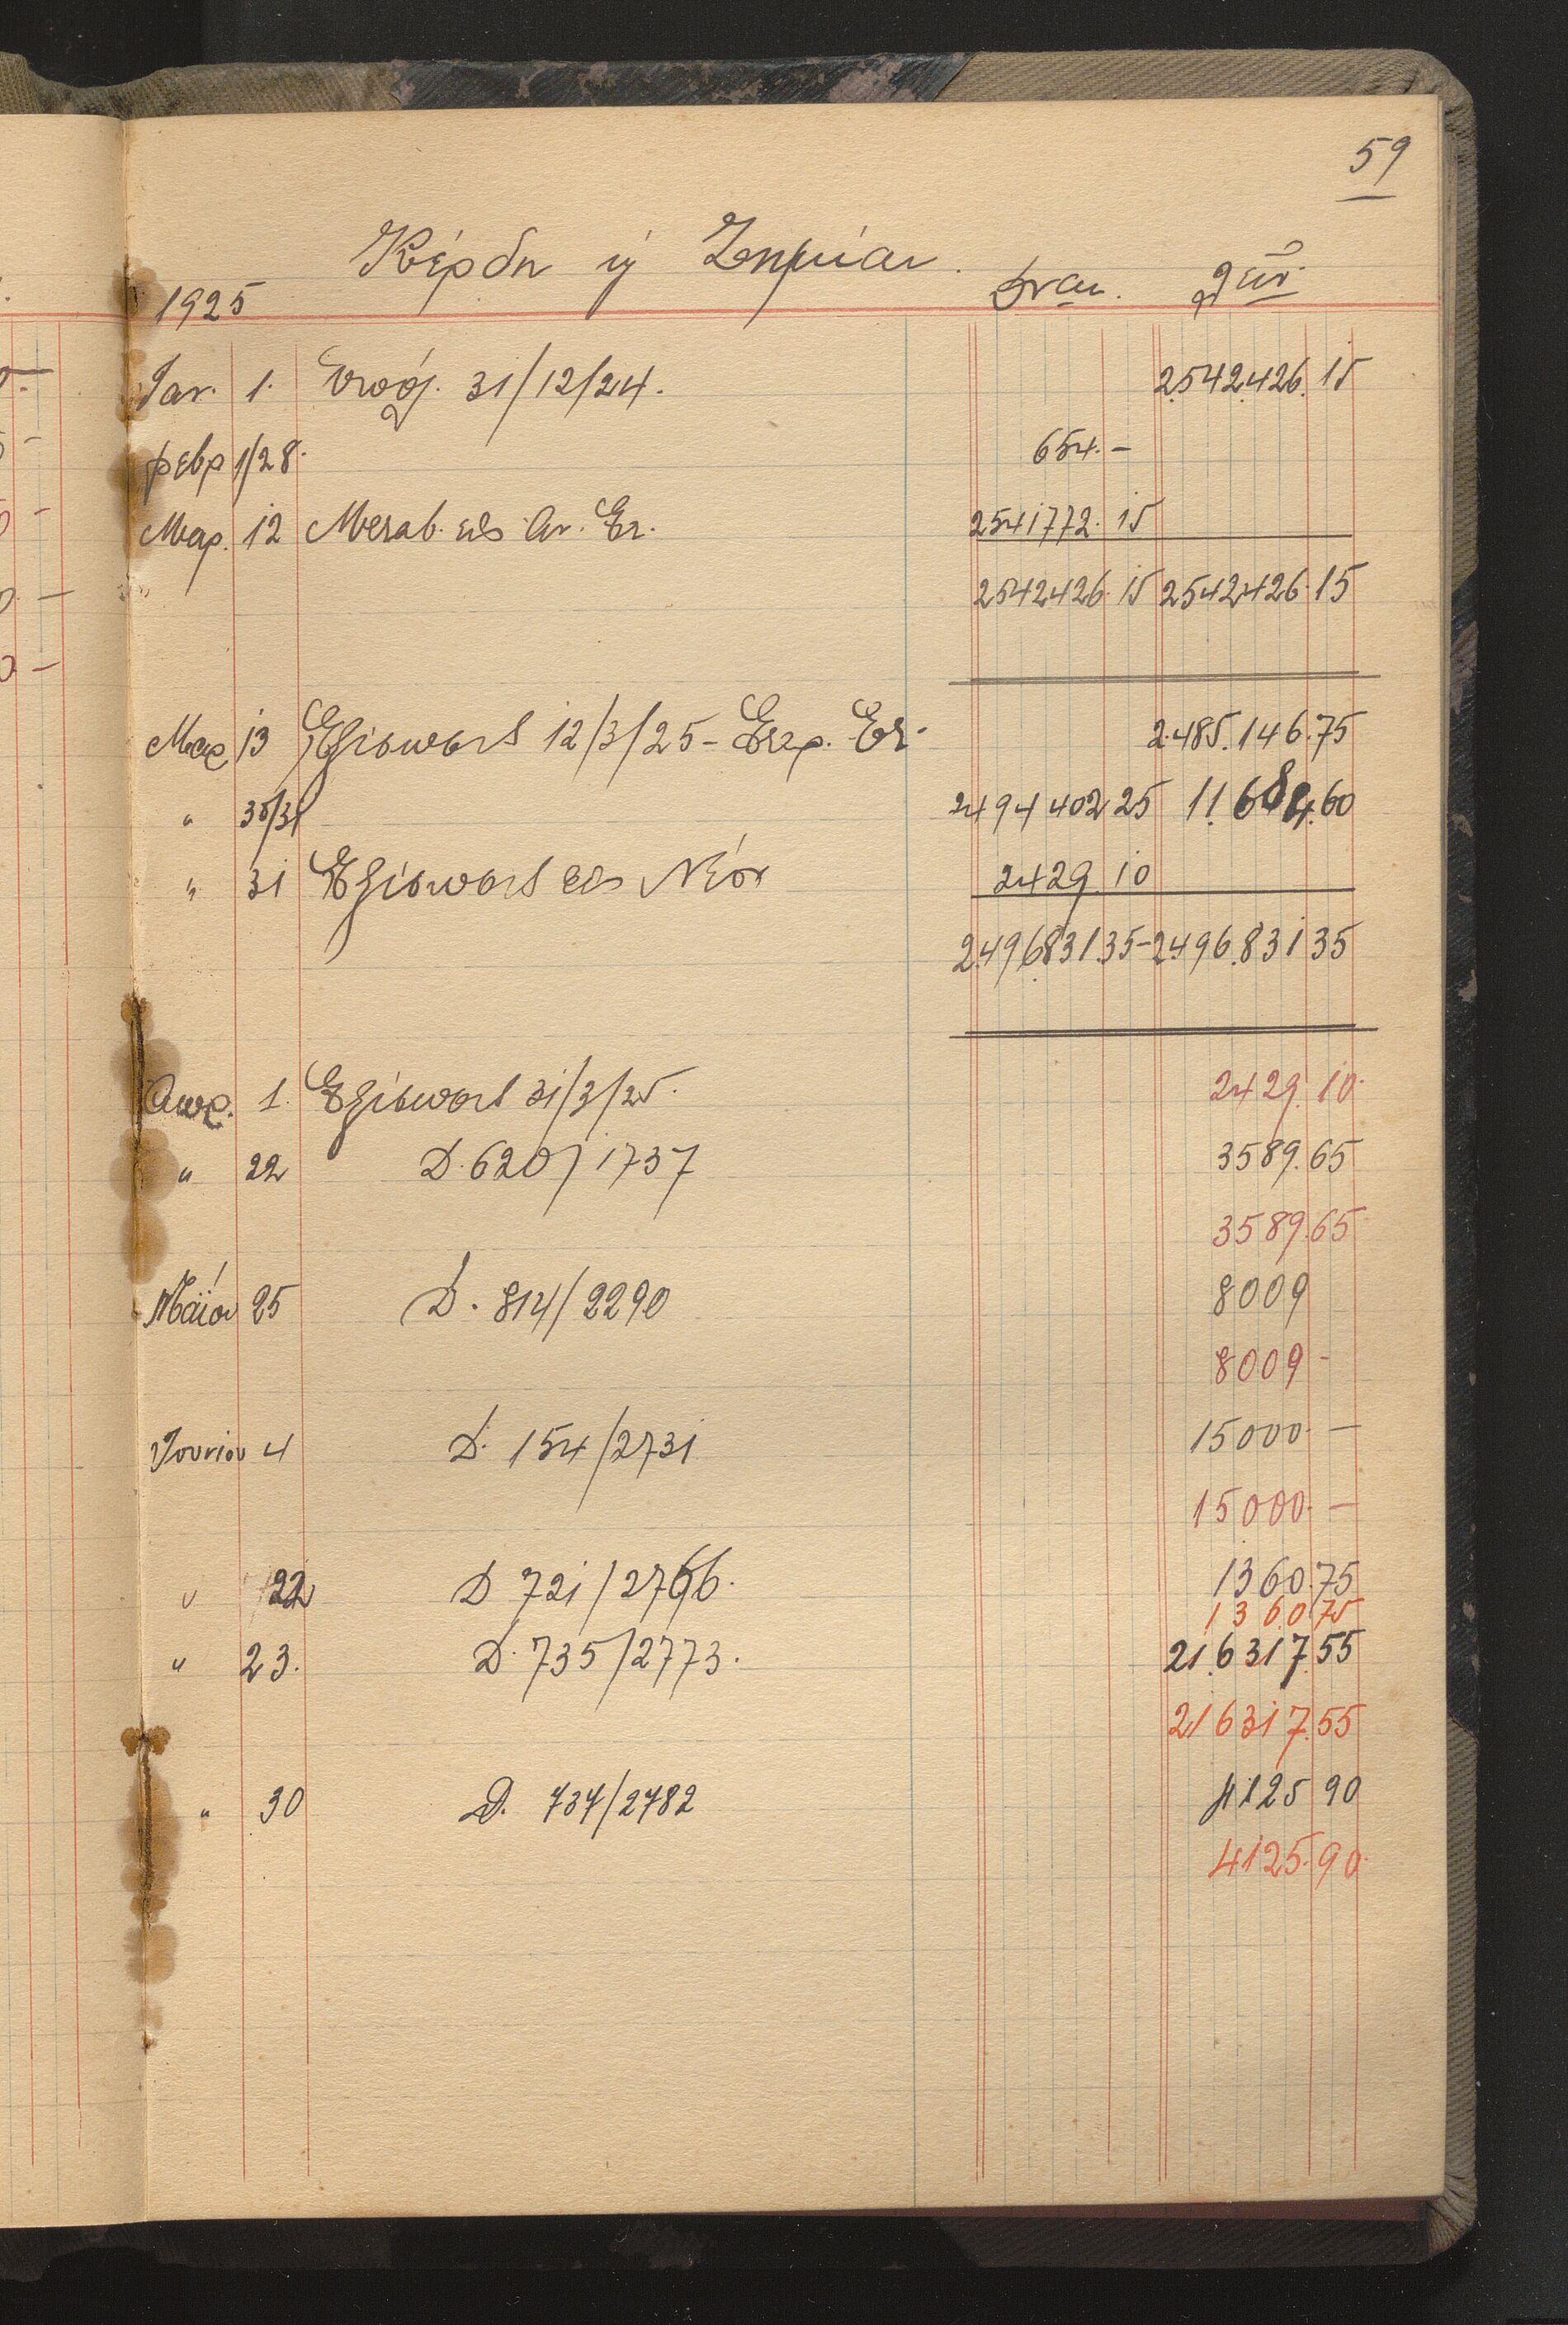 59
Κέρδη ή Ζημίαι.
1925
Ιαν. 1. Υπόλ. 31/12/24. 2.542.426.15
Φεβρ 1/28. 654.-
Μαρ. 12 Μεταβ. εις Αν. Ετ. 2541772.15
2542426.15 2542426.15
Μαρ 13 Εξίσωσις 12/3/25 - Ετερ. Ετ. 2.485.146.75
" 30/31 2494402 25 11.684.60
" 31 Εξίσωσις εις Νέον 2429.10
2.496.831.35 - 2.496.831 35
Απρ. 1. Εξίσωσις 31/3/25. 2429.10.
" 22 Δ. 620/1737 3589.65
3589.65
Μαΐου 25 Δ. 814/2290 8009
8009 -
Ιουνίου 4 Δ. 154/2731 15000. -
15000. -
" 22 Δ 721/2766. 1360.75
1360 75
" 23. Δ. 735/2773. 21.6317.55
216317.55
" 30 Δ. 737/2782 4125 90
4125.90.